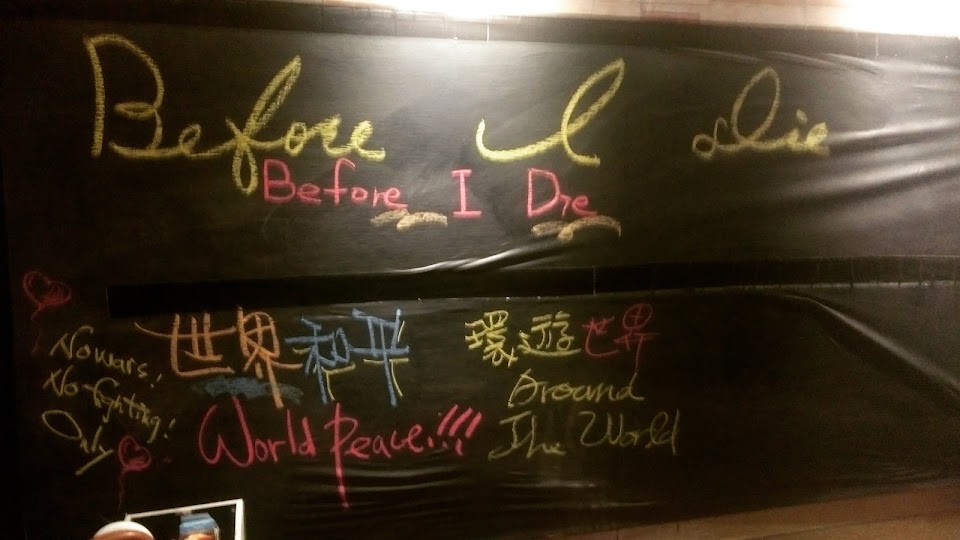 Before I Die
Before I Die
世界和平
World Peace!!!!
No wars!
No fighting!
Only
環遊世界
Around
The World